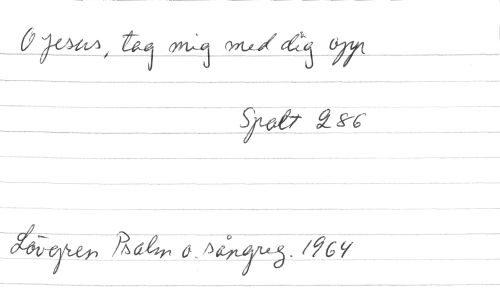 O Jesus, tag mig med dig opp
Spalt 286
Lövgren Psalm o. sångreg. 1964